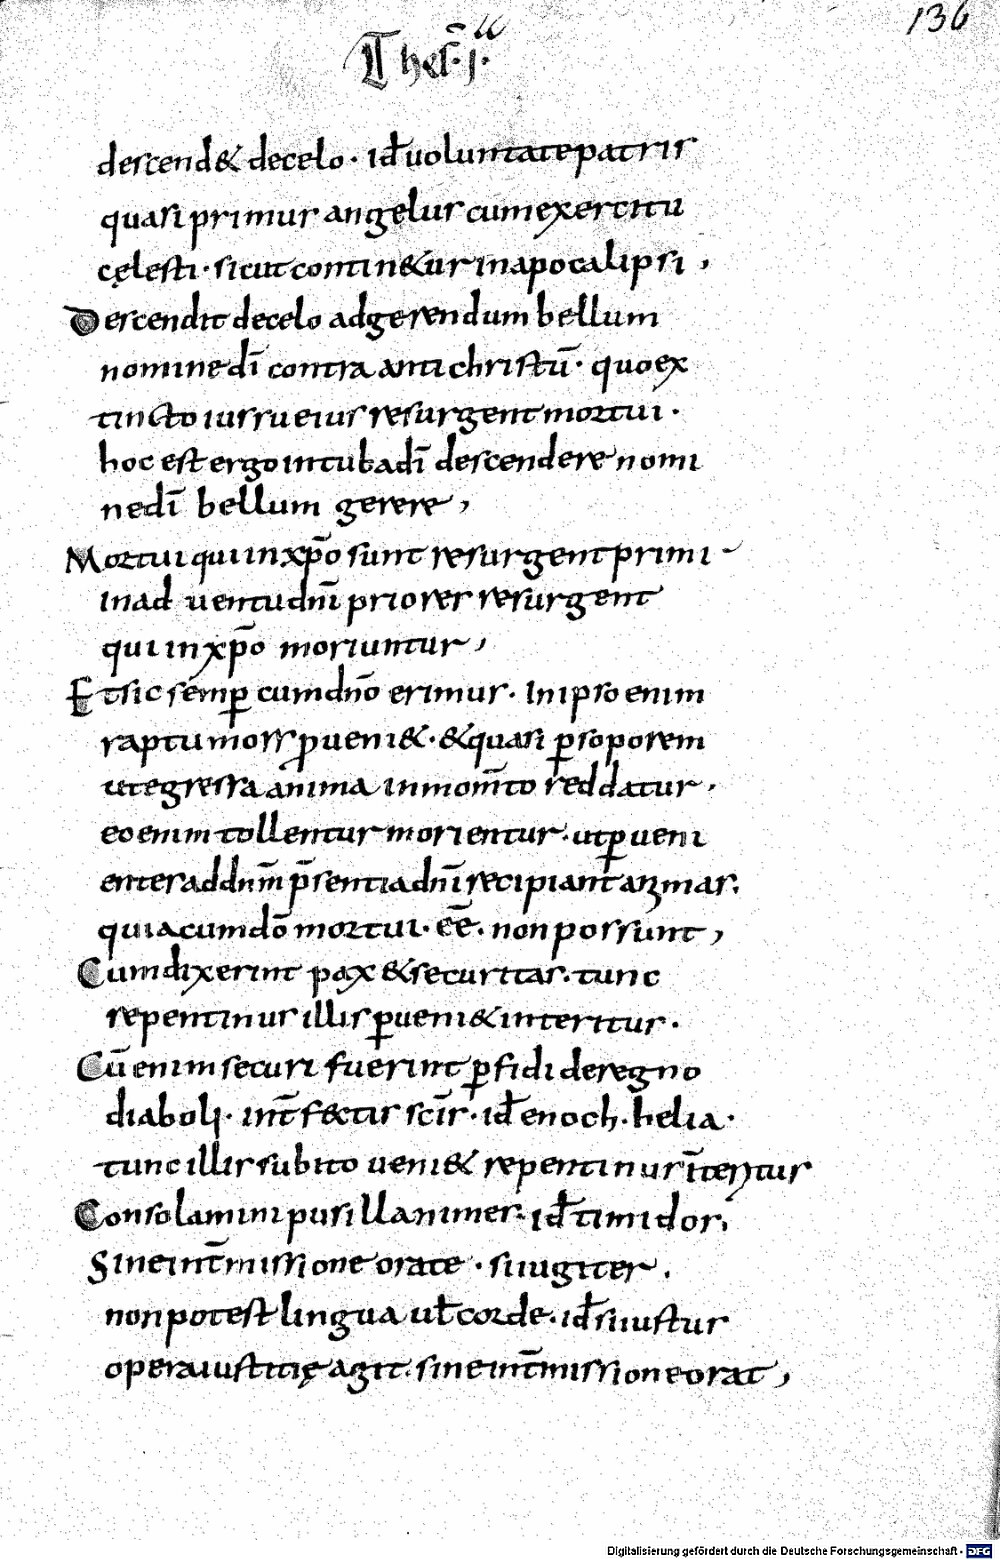 136
Thes̄. j.
descend& decelo · id̄ uoluntate patris
quasi primus angelus cum exercitu
cęlesti · sicut contin&ur in apocalipsi ,
Descendit decelo adgerendum bellum
nomine dī contra anti christū · quo ex
tincto iussu eius resurgent mortui ·
hoc est ergo in tuba dī descendere nomi
ne dī bellum gerere ,
Mortui qui in xp̄o sunt resurgent primi
in aduentu dn̄i priores resurgent
qui in xp̄o moriuntur ,
Et sic semꝑ cum dn̄o erimus · In ipso enim
raptu mors p̄ueni& · & quasi ꝑ soporem
ut egressa anima in mom̄to reddatur ·
eo enim tollentur morientur · ut ꝑueni
entes ad dn̄m p̄sentia dn̄i recipiant animas ·
quia cum dō mortui · eē · non possunt ,
Cum dixerint pax & securitas · tunc
repentinus illis ꝑueni& interitus ·
Cū enim securi fuerint ꝑfidi de regno
diaboli · int̄f&tis sc̄is · id̄ enoch · helia ·
tunc illis subito ueni& repentinus īteritus
Consolamini pusillanimes · id̄ timidos ,
Sine int̄missione orate · si iugiter ,
non potest lingua ul̄ corde · id̄ si iustus
opera iustitię agit · sine int̄missione orat ,
Digitalisierung gefördert durch die Deutsche Forschungsgemeinschaft - DFG